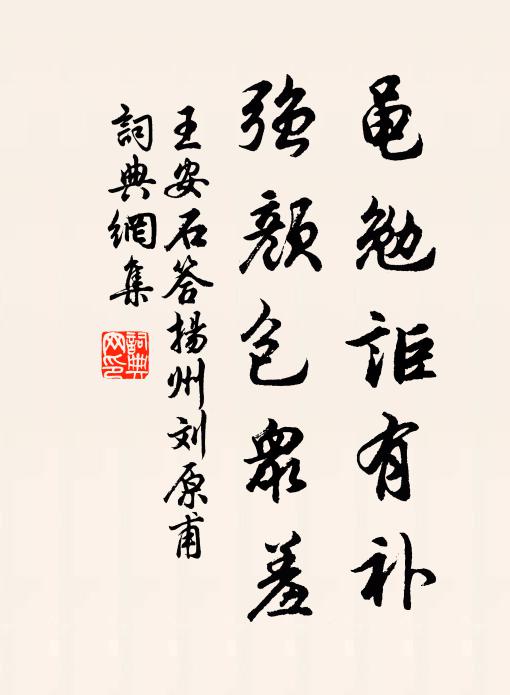 黾勉讵有补
强颜包众羞
王安石答揚州刘原甫
詞典網集
詞典网印